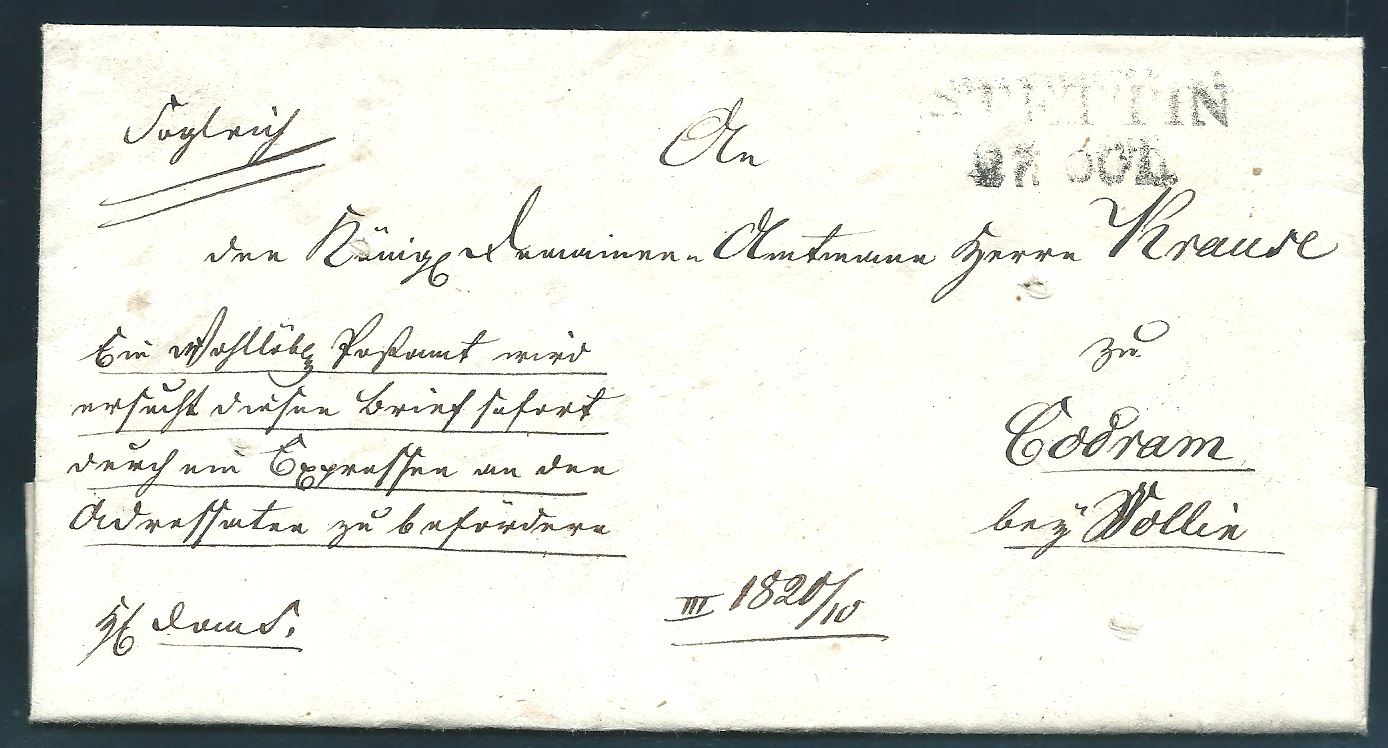 STETTIN
27 OCT.
Sogleich
An
den Königl Domainen-Amtmann Herrn Krause
zu
Codram
bey Wollin
Ein Wohllöbl Postamt wird
ersucht diesen Brief sofort
durch ein Expressen an den
Adressaten zu befördern
III 1820/10
Doms.